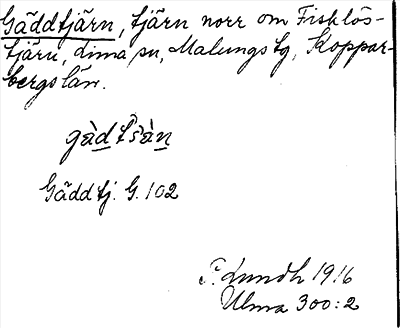 Gäddtjärn, tjärn norr om Fisklös-
tjärn, Lima sn, Malungs tg, Koppar-
bergs län.
gàdtšàn
Gäddtj. G. 102
P. Lundh 1916
Ulma 300:2